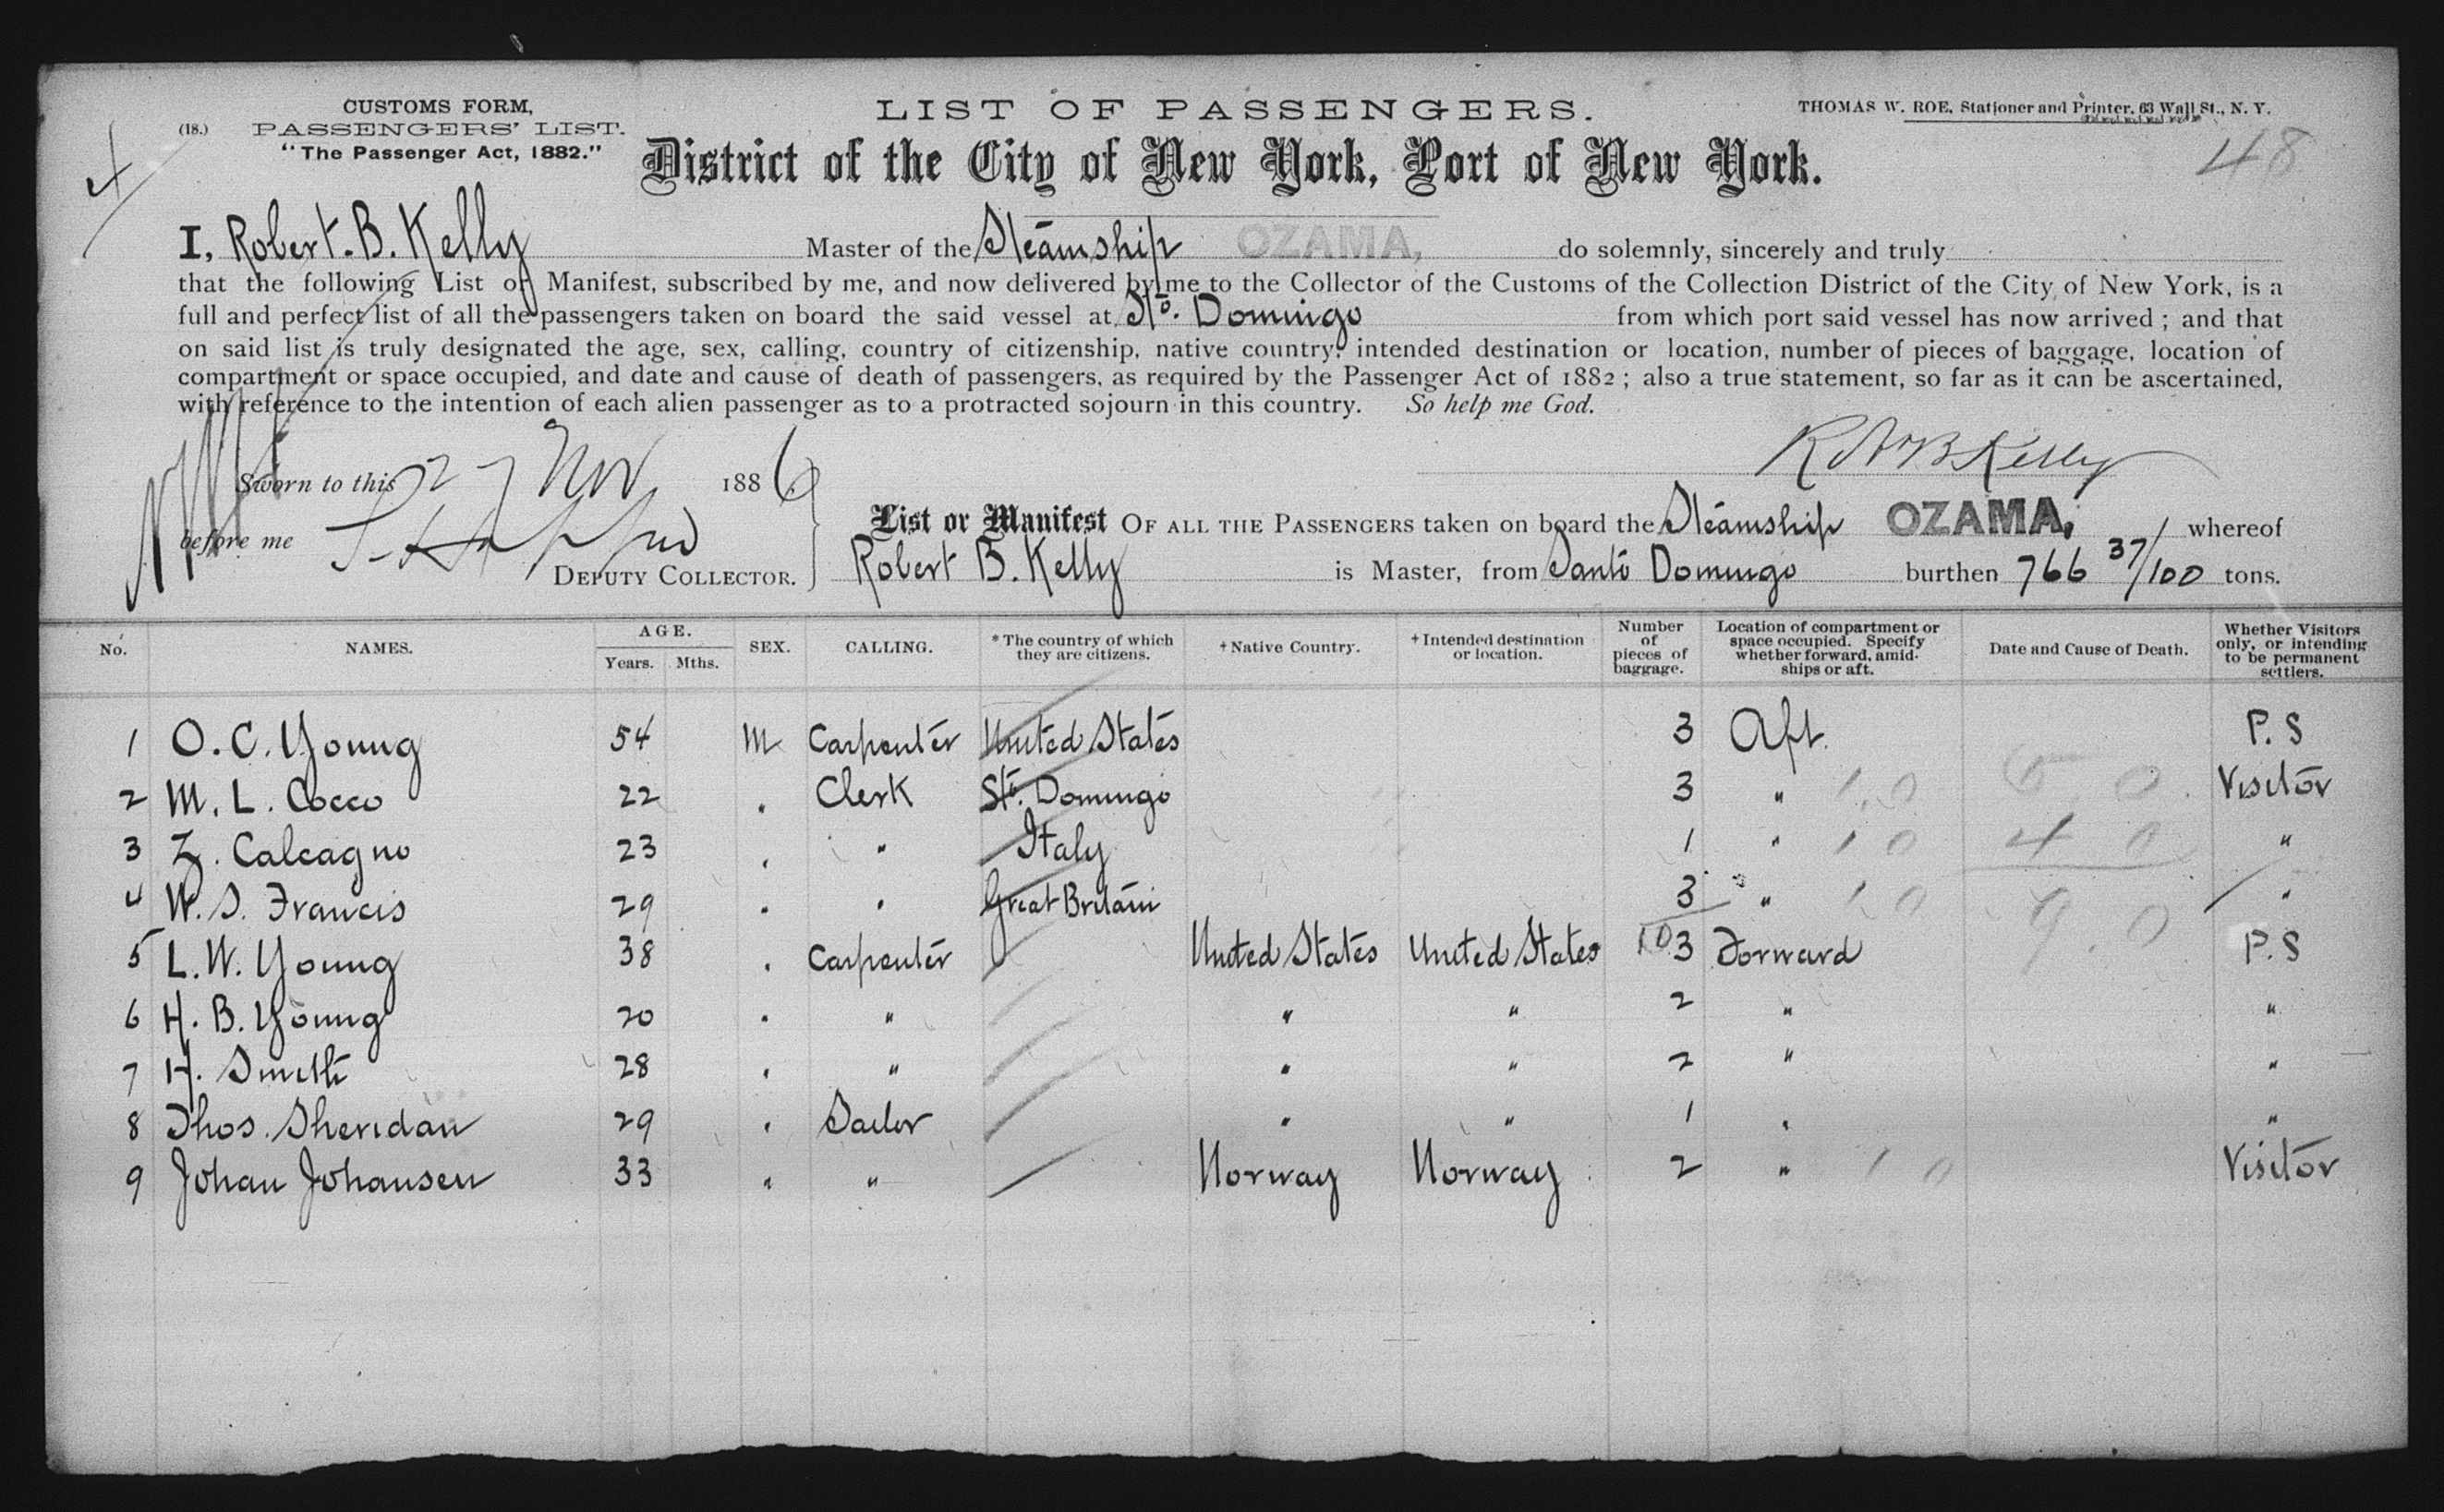 CUSTOMS FORM,
(18.) PASSENGERS' LIST.
"The Passenger Act, 1882."
LIST OF PASSENGERS.
THOMAS W. ROE, Stationer and Printer, 63 Wall St., N. Y.
48
4
District of the City of New York, Port of New York.
I, Robert. B. Kelly Master of the Steamship OZAMA, do solemnly, sincerely and truly
that the following List or Manifest, subscribed by me, and now delivered by me to the Collector of the Customs of the Collection District of the City of New York, is a
full and perfect list of all the passengers taken on board the said vessel at Sto. Domingo from which port said vessel has now arrived; and that
on said list is truly designated the age, sex, calling, country of citizenship, native country, intended destination or location, number of pieces of baggage, location of
compartment or space occupied, and date and cause of death of passengers, as required by the Passenger Act of 1882; also a true statement, so far as it can be ascertained,
with reference to the intention of each alien passenger as to a protracted sojourn in this country. So help me God.
Sworn to this 27 Nov 1886.
RobB Kelly
before me
DEPUTY COLLECTOR.
List or Manifest OF ALL THE PASSENGERS taken on board the Steamship OZAMA, whereof
Robert B. Kelly is Master, from Santo Domingo burthen 766 37/100 tons.
No. NAMES. AGE. Years. Mths. SEX. CALLING. *The country of which they are citizens. +Native Country. +Intended destination or location. Number of pieces of baggage. Location of compartment or space occupied. Specify whether forward, amidships or aft. Date and Cause of Death. Whether Visitors only, or intending to be permanent settlers.
1 O. C. Young 54 M Carpenter United States 3 Aft. P. S
2 M. L. Cocco 22 " Clerk Sto. Domingo 3 " 1 0 5 0 Visitor
3 Z. Calcagno 23 " " Italy 1 " 1 0 4 0 "
4 W. S. Francis 29 " " Great Britain 3 " 1 0 9 0 "
5 L. W. Young 38 " Carpenter United States United States 10 3 Forward P. S
6 H. B. Young 20 " " " " 2 " "
7 H. Smith 28 " " " " 2 " "
8 Thos. Sheridan 29 " Sailor " " 1 " "
9 Johan Johansen 33 " " Norway Norway 2 " 1 0 Visitor